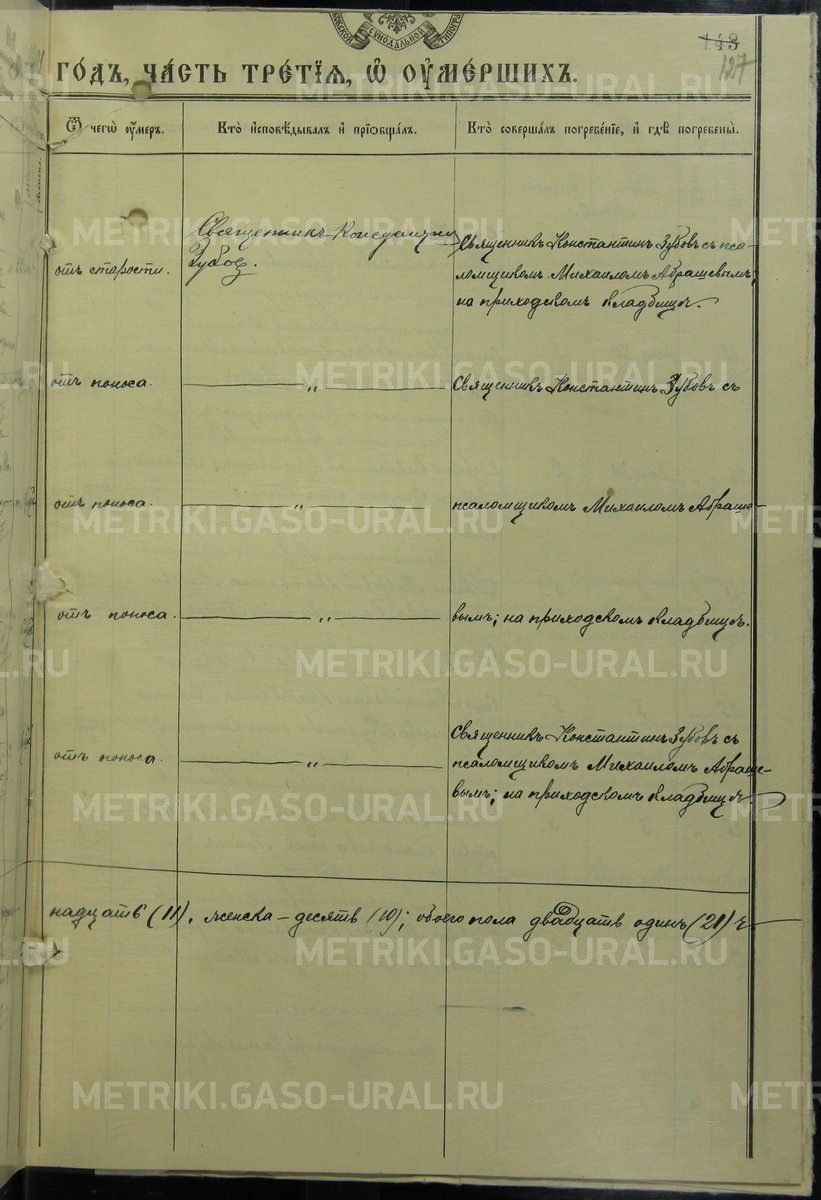 СУНОДАЛЬНОЙ
143
127
ГО́ДЪ, ЧА́СТЬ ТРЕ́ТІѦ, Ѡ҆ ОУ҆МЕ́РШИХЪ.
Ѿ чегѡ̀ оу҆́меръ.
Кто̀ и҆сповѣ́дывалъ и҆ прїѡбща́лъ.
Кто̀ соверша́лъ погребе́нїе, и҆ гдѣ̀ погребены̀.
отъ старости.
Священникъ
Зубов.
Священникъ Константинъ Зубовъ съ пса-
ломщикомъ Михаиломъ Абрашевымъ;
на приходскомъ кладбищѣ.
отъ поноса. „ Священникъ Константинъ Зубовъ съ
отъ поноса. „ псаломщикомъ Михаиломъ Абраше-
отъ поноса. „ вымъ; на приходскомъ кладбищѣ.
отъ поноса. „
Священникъ Константинъ Зубовъ съ
псаломщикомъ Михаиломъ Абраше-
вымъ; на приходскомъ кладбищѣ.
надцать (11), женска – десять (10); обоего пола двадцать одинъ (21) ч
METRIKI.GASO-URAL.RU